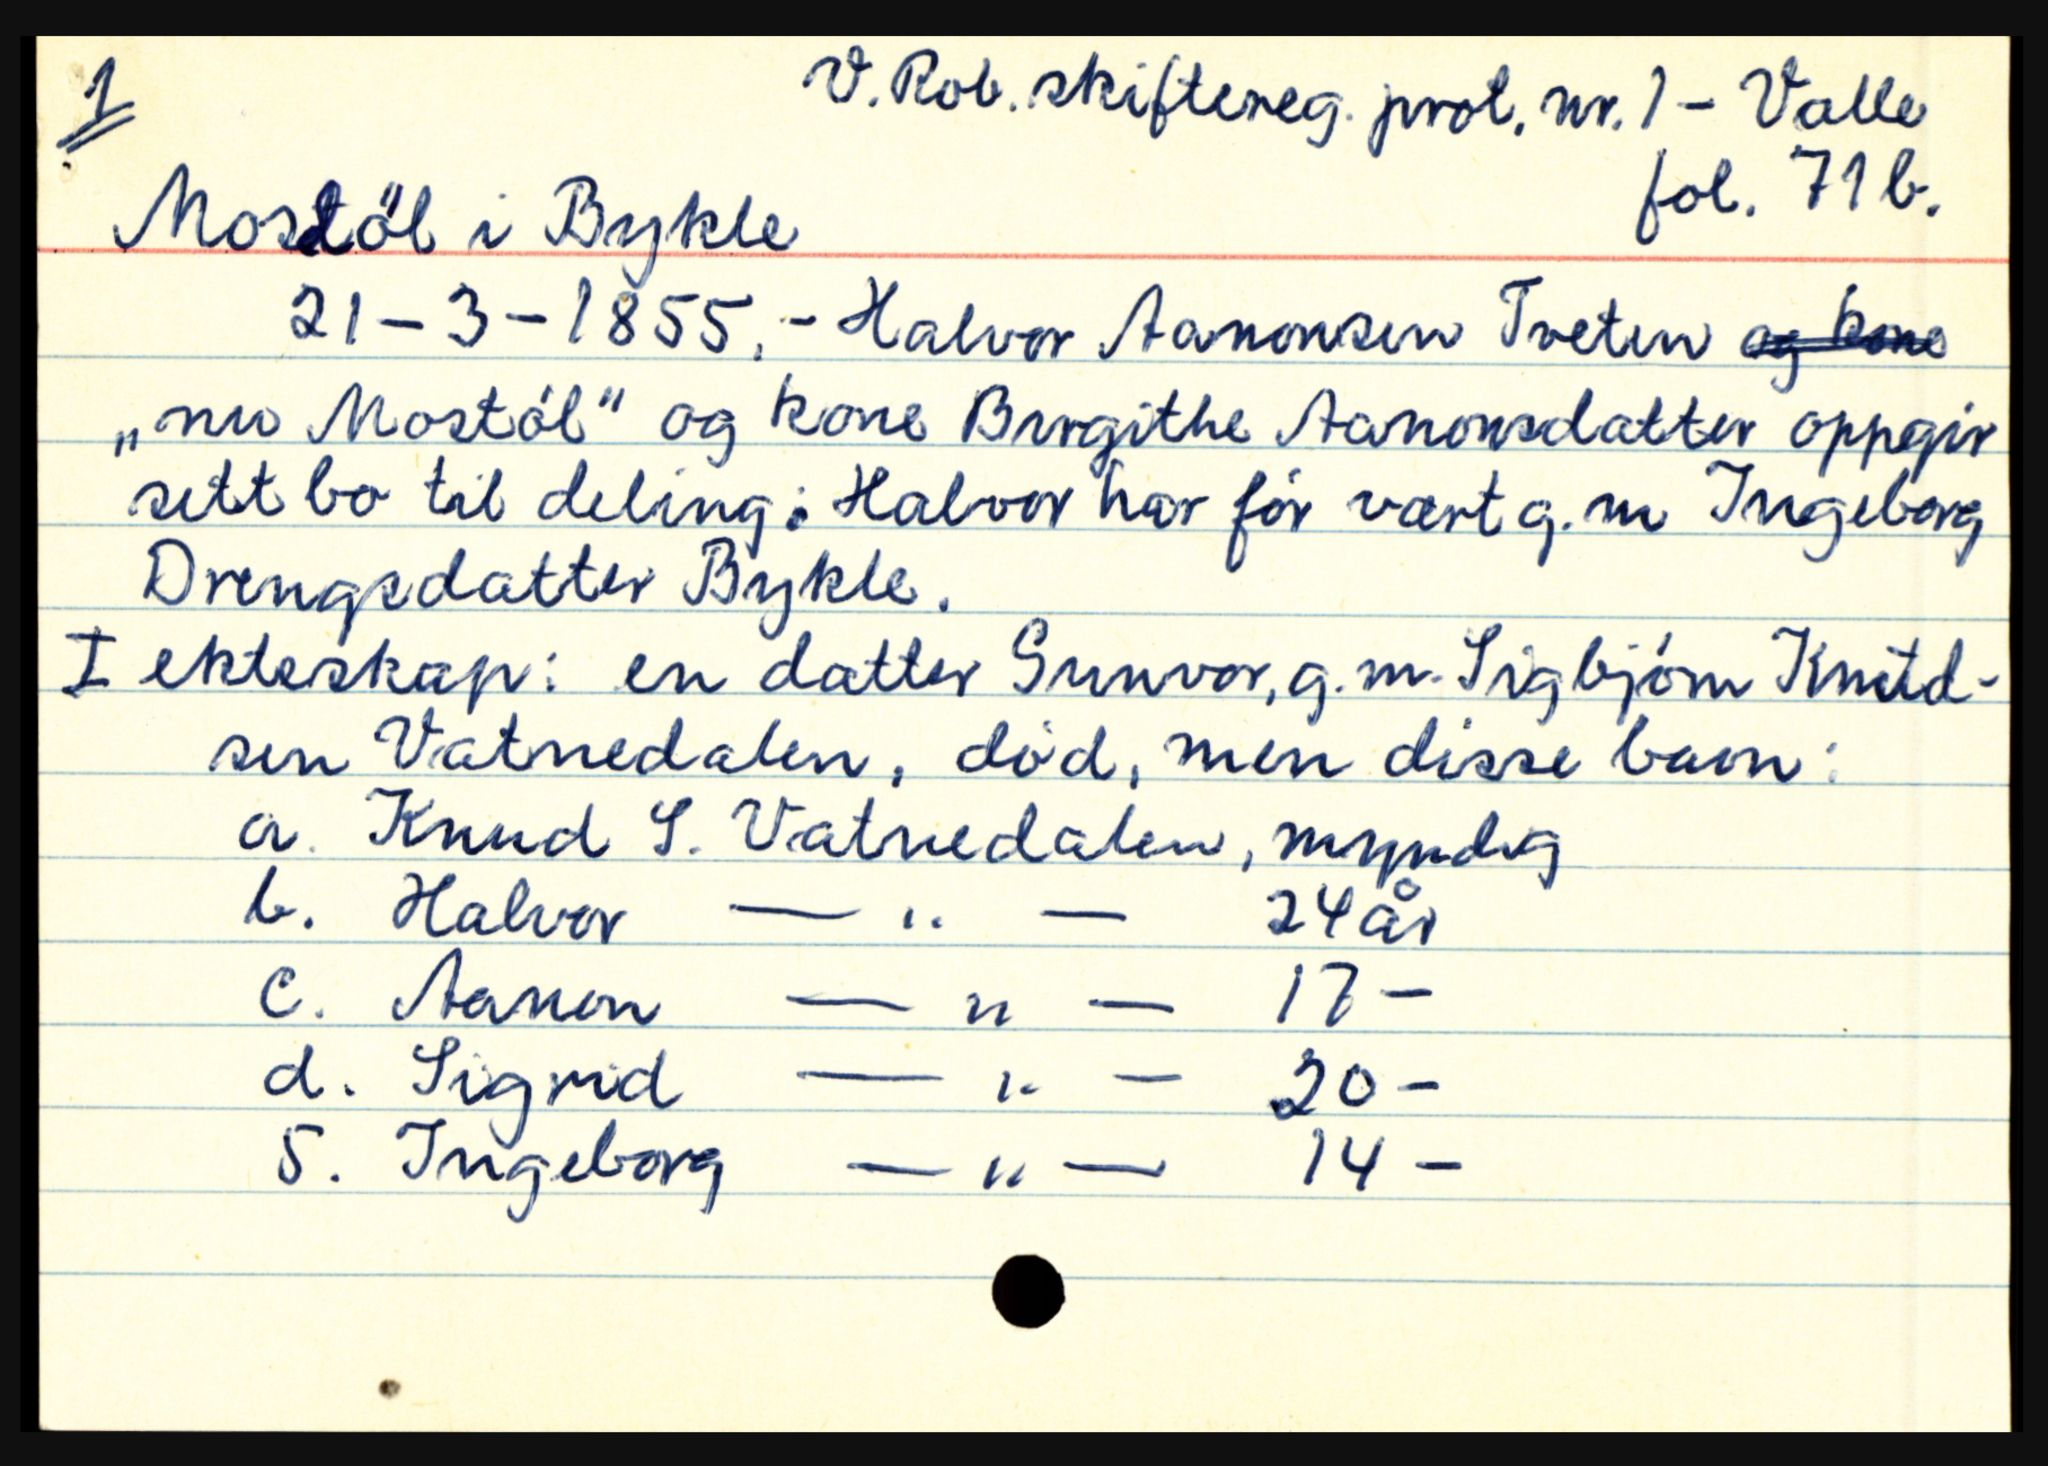 1
V. Rob. skiftereg. prot. nr. 1 - Valle
fol. 71 b.
Mostöl i Bykle
21-3-1855. - Halvor Aanonsen Tveten og kone
„nu Mostöl" og kone Birgithe Aanonsdatter oppgir
sitt bo til deling. Halvor har för vært g. m Ingeborg
Drengsdatter Bykle.
I ekteskap: en datter Gunvor, g.m. Sigbjörn Knud-
sen Vatnedalen, död, men disse barn:
a. Knud S. Vatnedalen, myndig
b. Halvor — " — 24 år
c. Aanon — " — 17 -
d. Sigrid — " — 20 -
5. Ingeborg — " — 14 -